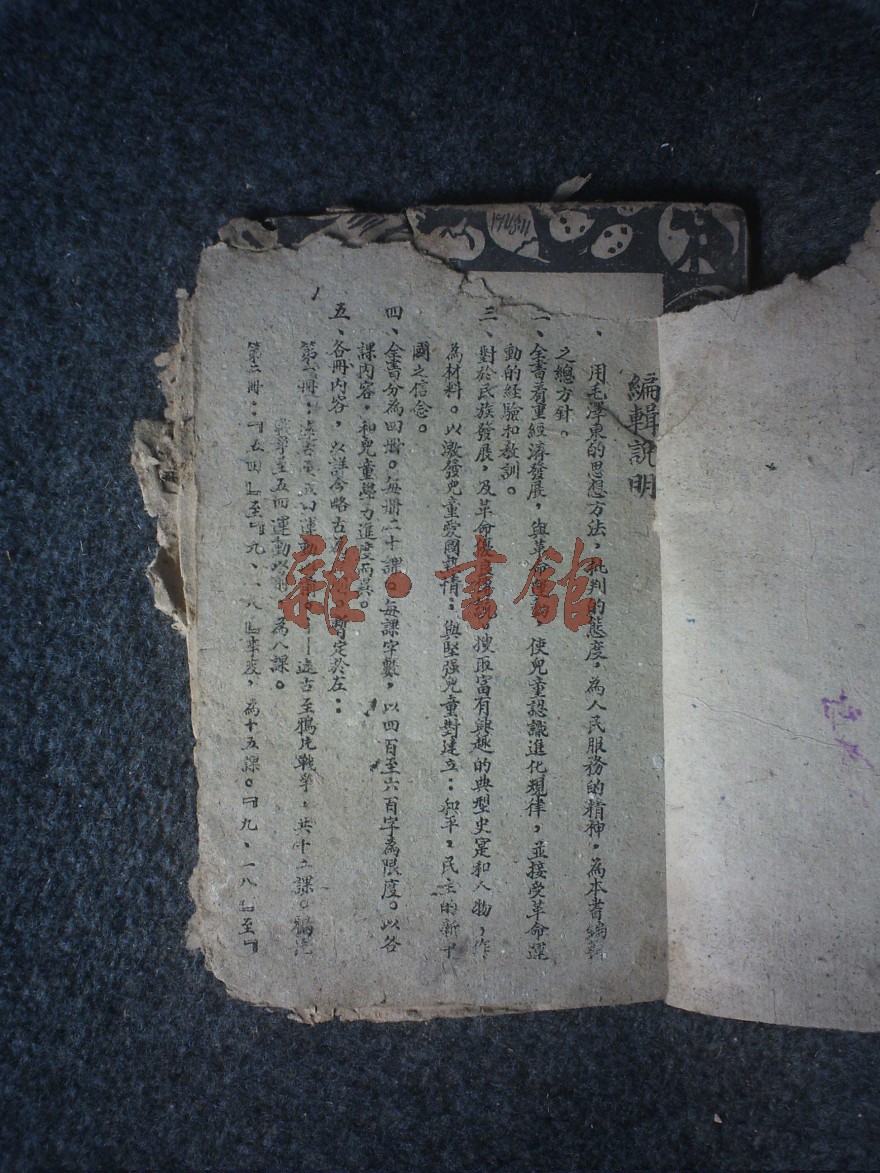 編輯說明
、用毛澤東的思想方法,批判的態度,為人民服務的精神,為本書編輯
之總方針。
二、全書着重經濟發展,與革命運動,使兒童認識進化規律,並接受革命運
動的經驗和教訓。
三、對於民族發展,及革命 搜取富有興趣的典型史寔和人物,作
為材料。以激發兒童愛國熱情:與堅强兒童對建立:和平,民主的新中
國之信念。
四、全書分為四冊。每冊二十課。每課字數,以四百至六百字為限度。以各
課內容,和兒童學力進度而異。
五、各冊內容,以詳今略古 暫定於左:
第一冊: 運動 遠古至鴉片戰爭,共十二課。鴉片
戰爭至五四運動以前 為八課。
第二冊:『五四』至『九、一八』事變,為十五課。『九、一八』至『
雜·書館
1945.11